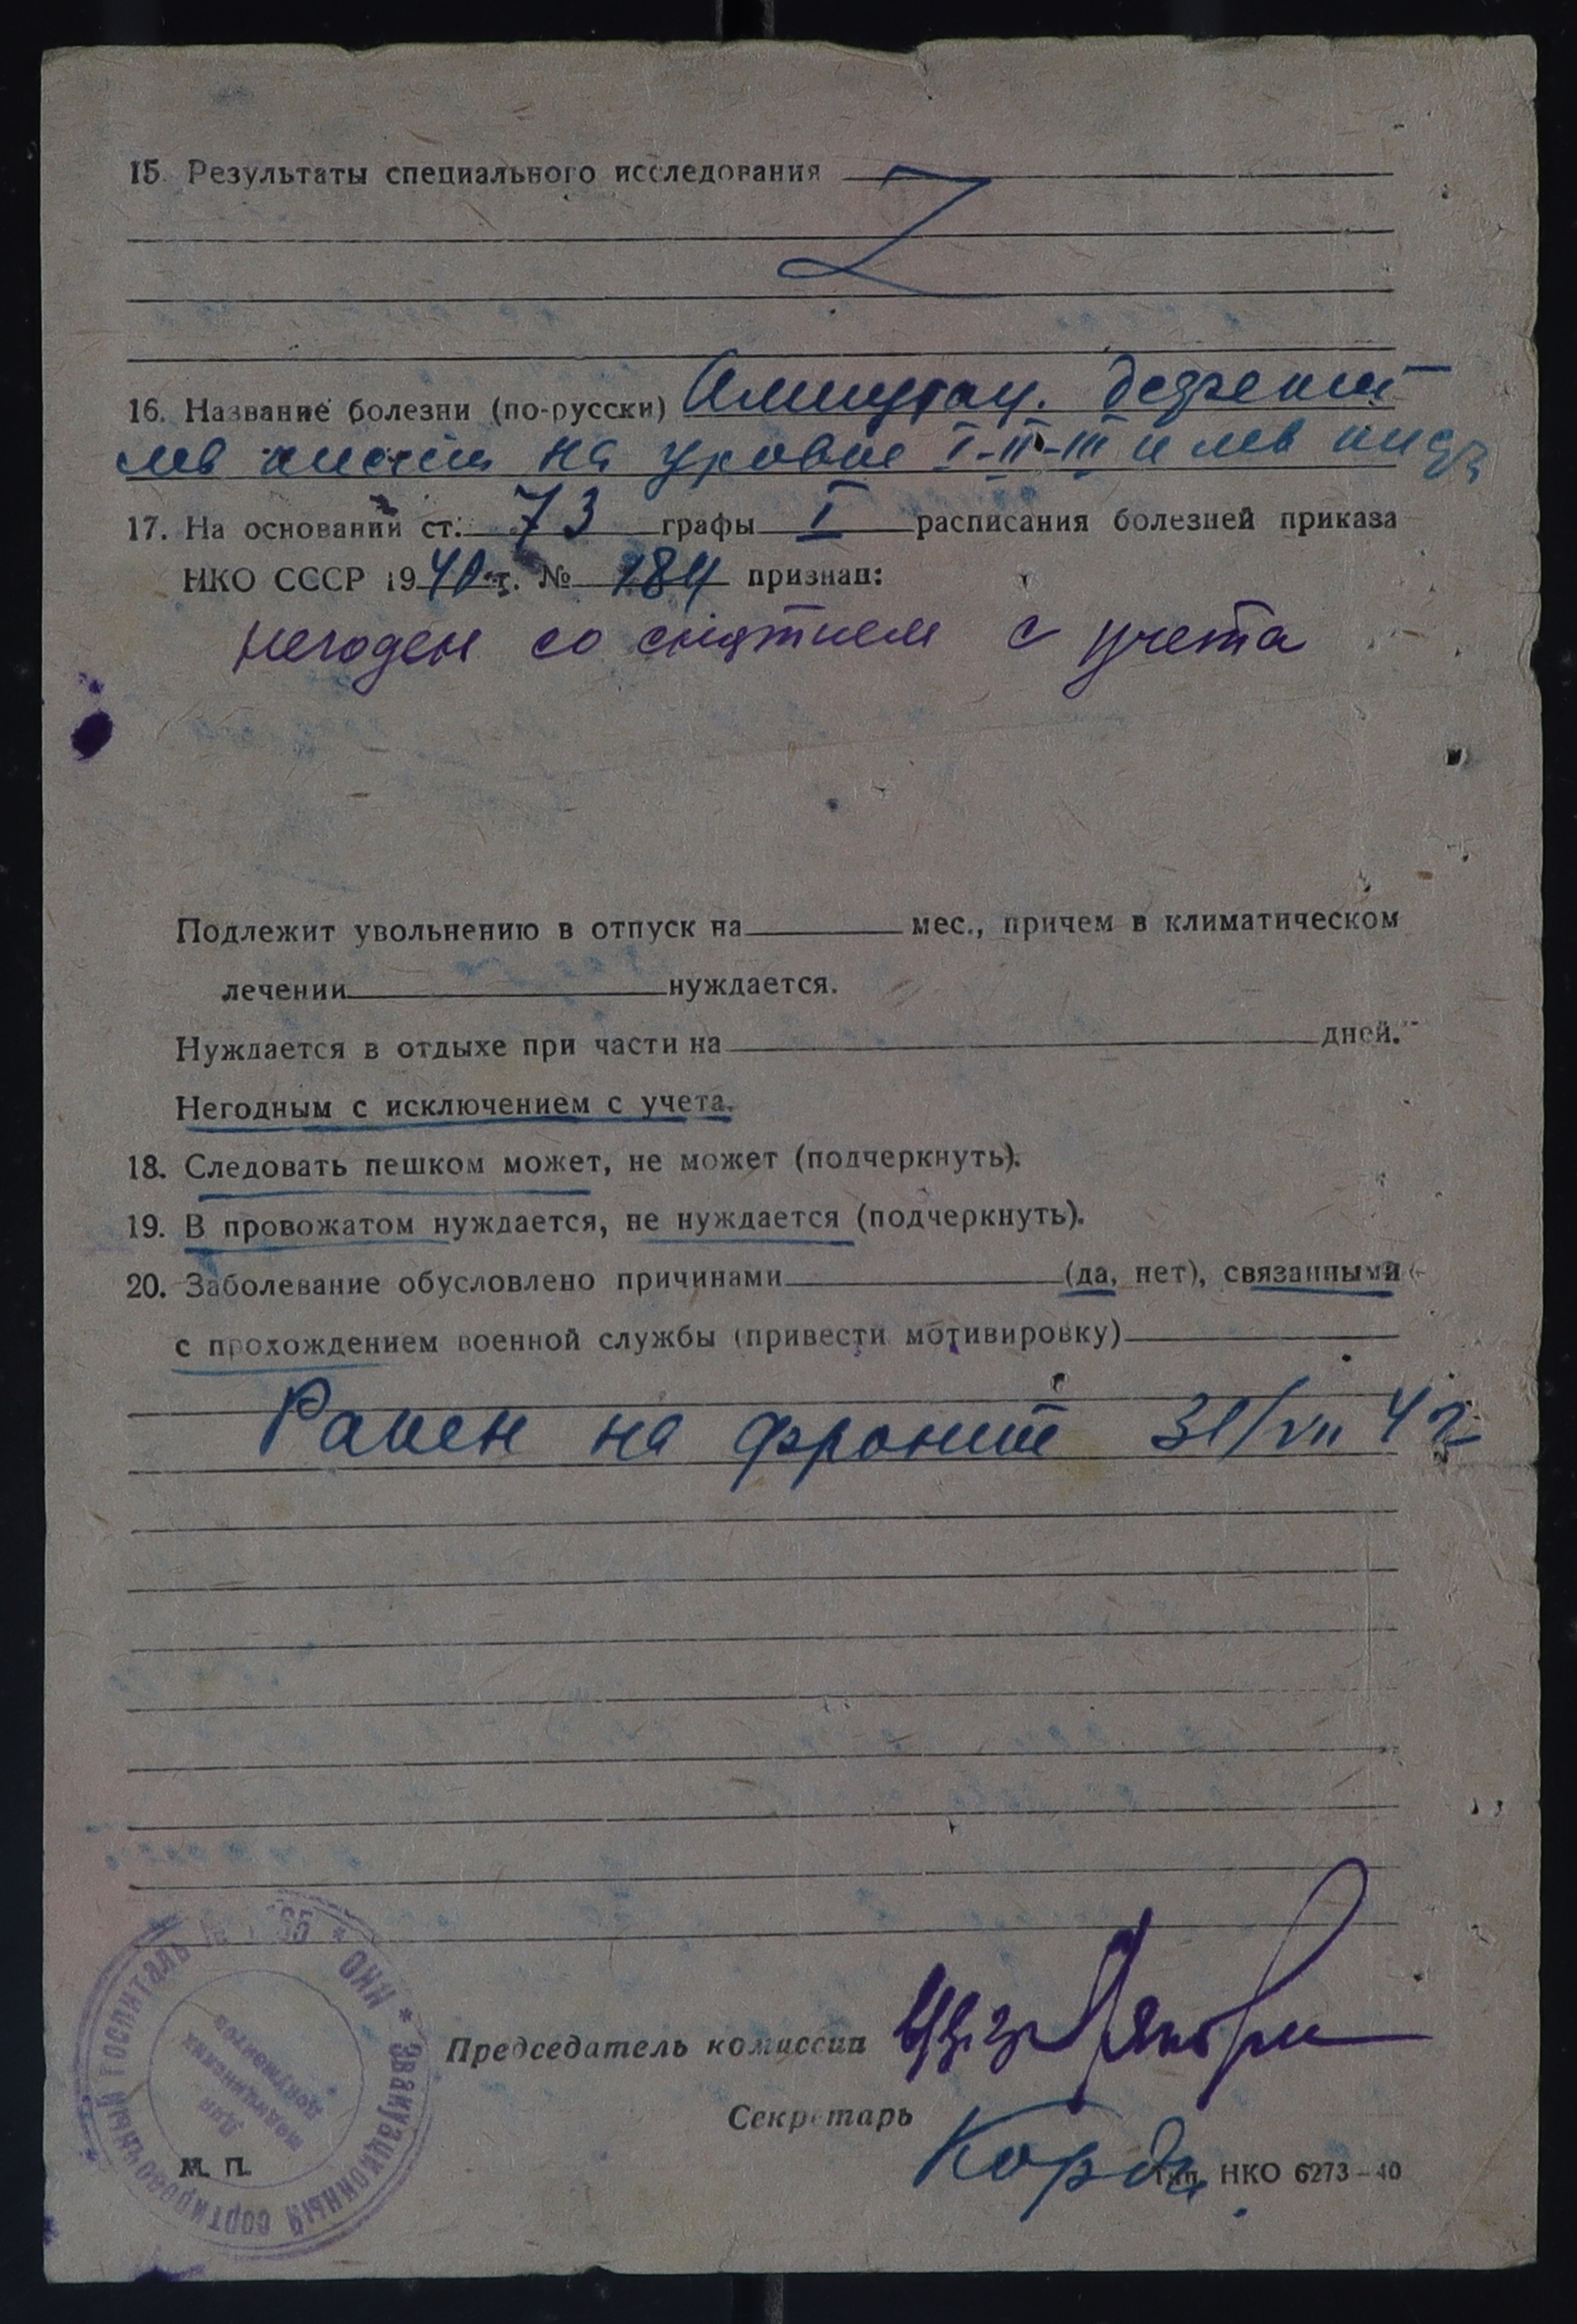 15. Результаты специального исследования
Z
16. Название болезни (по-русски) Ампутац. дефект
лев кисти на уровне I-II-III и лев
17. На основании ст. 73 графы I расписания болезней приказа
НКО СССР 1940 г. № 184 признан:
негоден со снятием с учета
Подлежит увольнению в отпуск на мес., причем в климатическом
лечении нуждается.
Нуждается в отдыхе при части на дней.
Негодным с исключением с учета.
18. Следовать пешком может, не может (подчеркнуть).
19. В провожатом нуждается, не нуждается (подчеркнуть).
20. Заболевание обусловлено причинами (да, нет), связанными
с прохождением военной службы (привести мотивировку)
Ранен на фронте 31/VII 42
* ОНН * Эвакуационный сортировочный госпиталь №
Для
медицинских
документов
Председатель комиссии
Секретарь
М. П.
Тип. НКО 6273–40